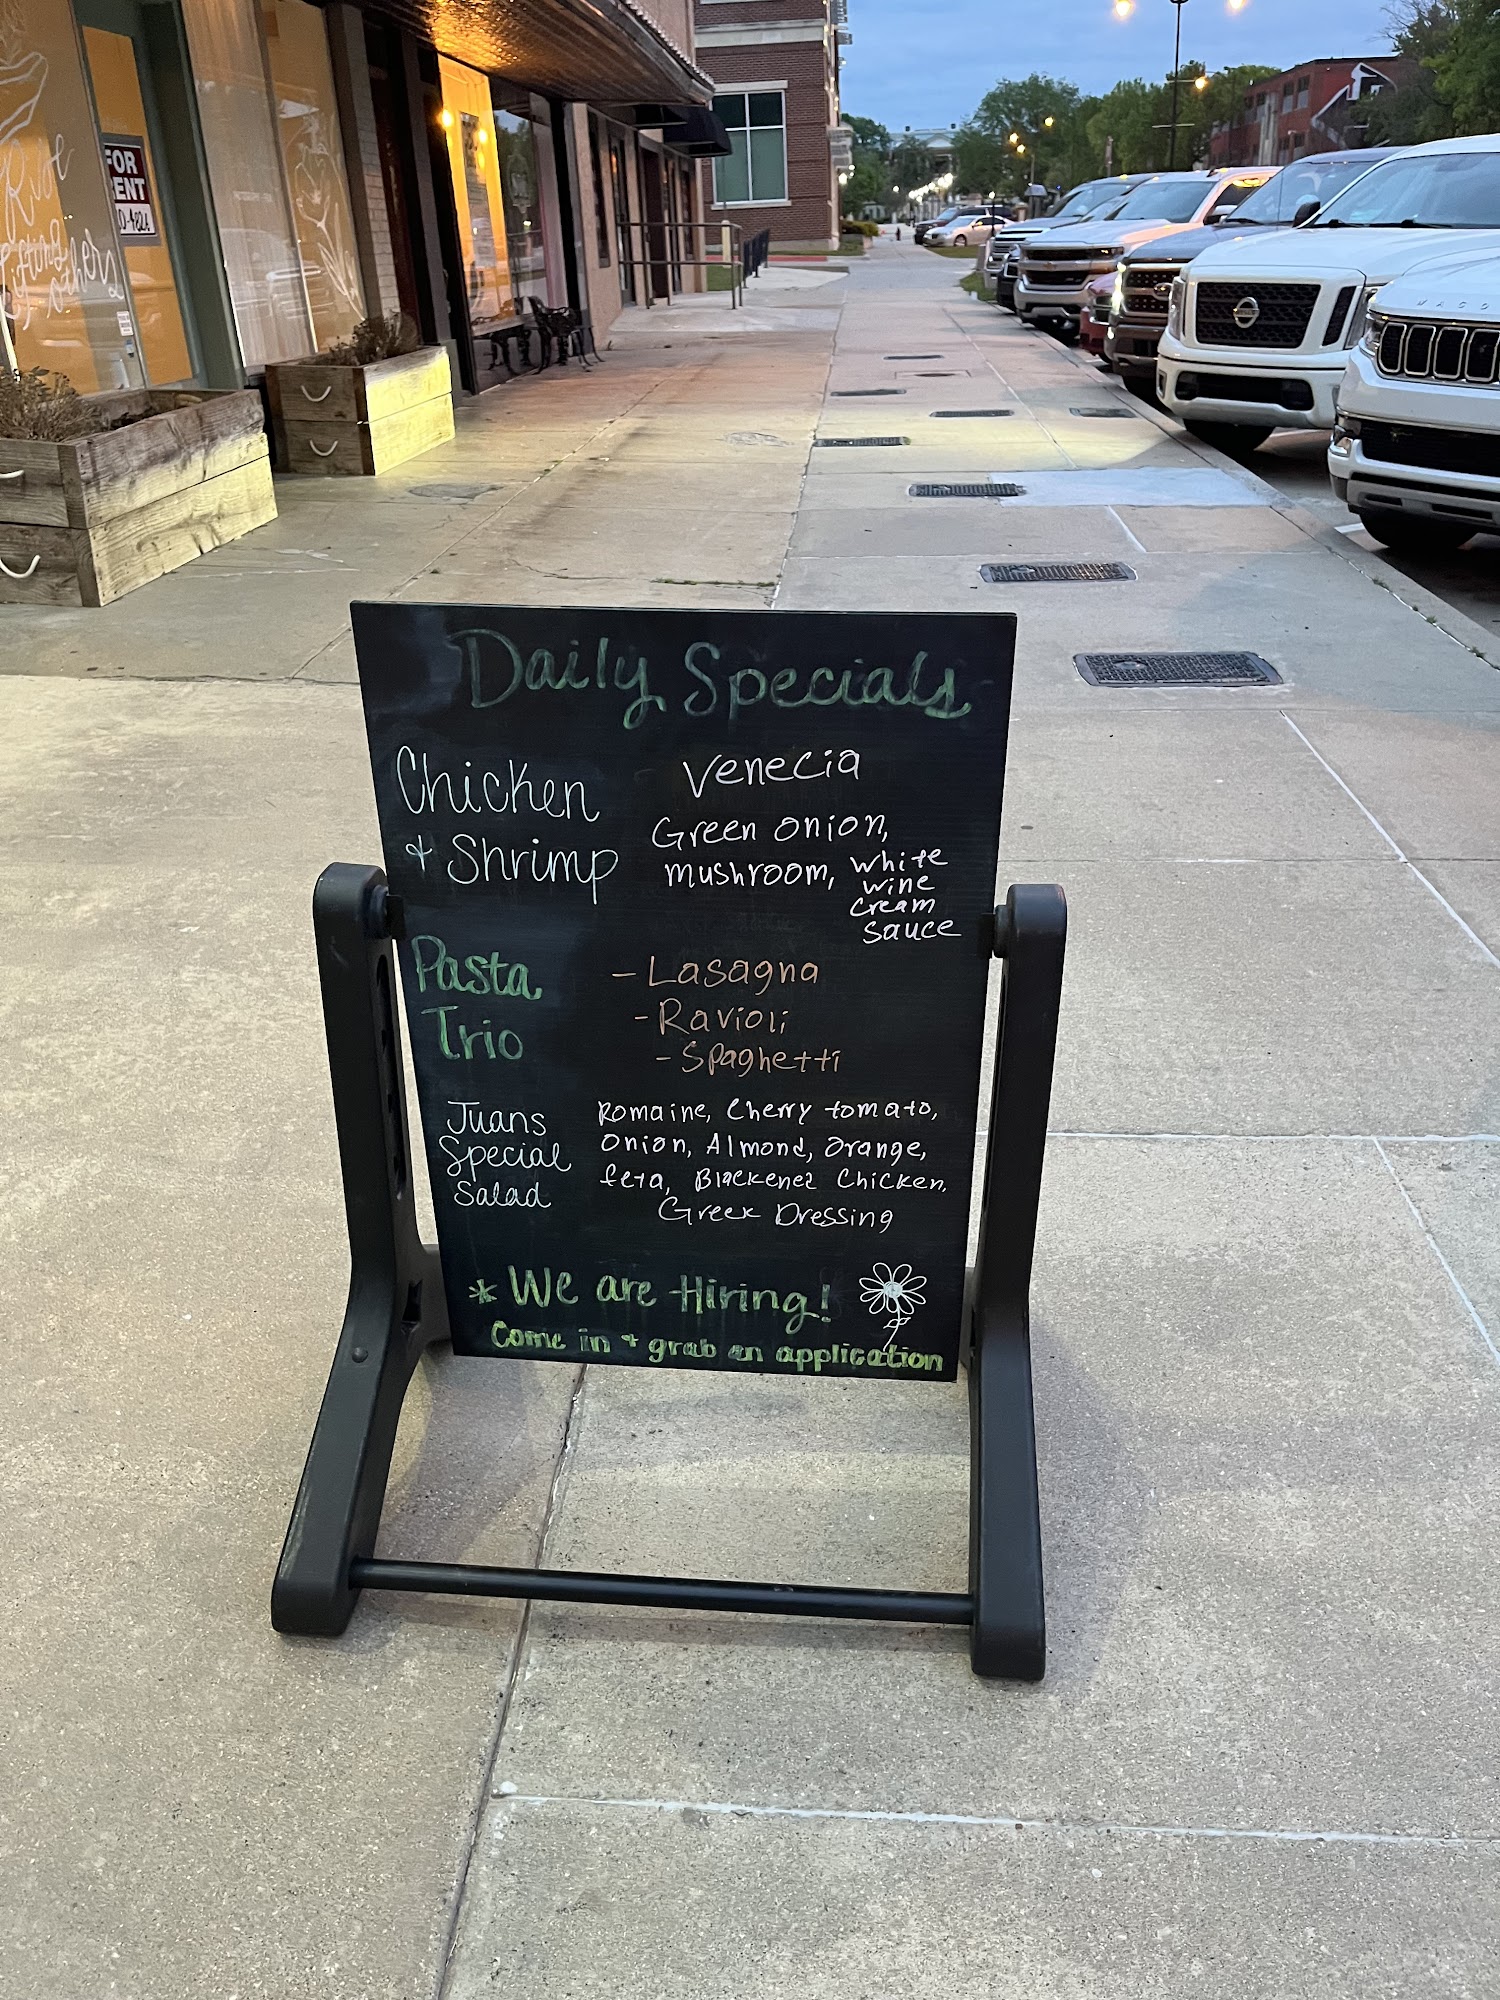 FOR
RENT
Rise
by lifting
others
WAGO
Daily Specials
Chicken
& Shrimp
Venecia
Green onion,
mushroom, white
wine
cream
sauce
Pasta
Trio
- Lasagna
- Ravioli
- Spaghetti
Juans
Special
Salad
Romaine, Cherry tomato,
Onion, Almond, orange,
feta, Blackened Chicken,
Greek Dressing
* We are Hiring!
Come in + grab an application